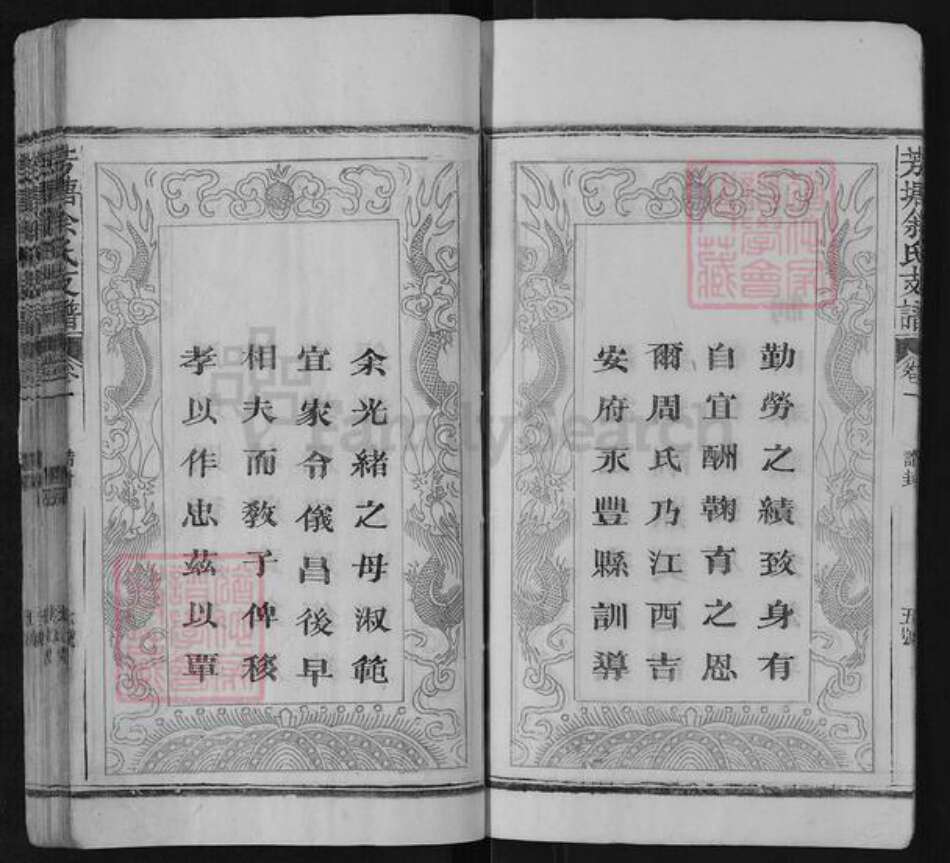 勤勞之績致身有
自宜酬鞠育之恩
爾周氏乃江西吉
安府永豐縣訓導
余光緒之母淑範
宜家令儀昌後早
相夫而敎子俾移
孝以作忠茲以覃
余氏支譜
卷一
FamilySearch